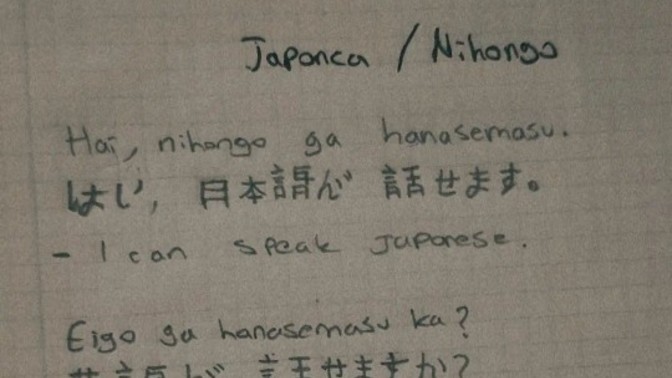 Japonca / Nihongo
Hai, nihongo ga hanasemasu.
はい, 日本語が 話せます。
- I can speak Japonese.
Eigo ga hanasemasu ka?
英語が 話せますか?